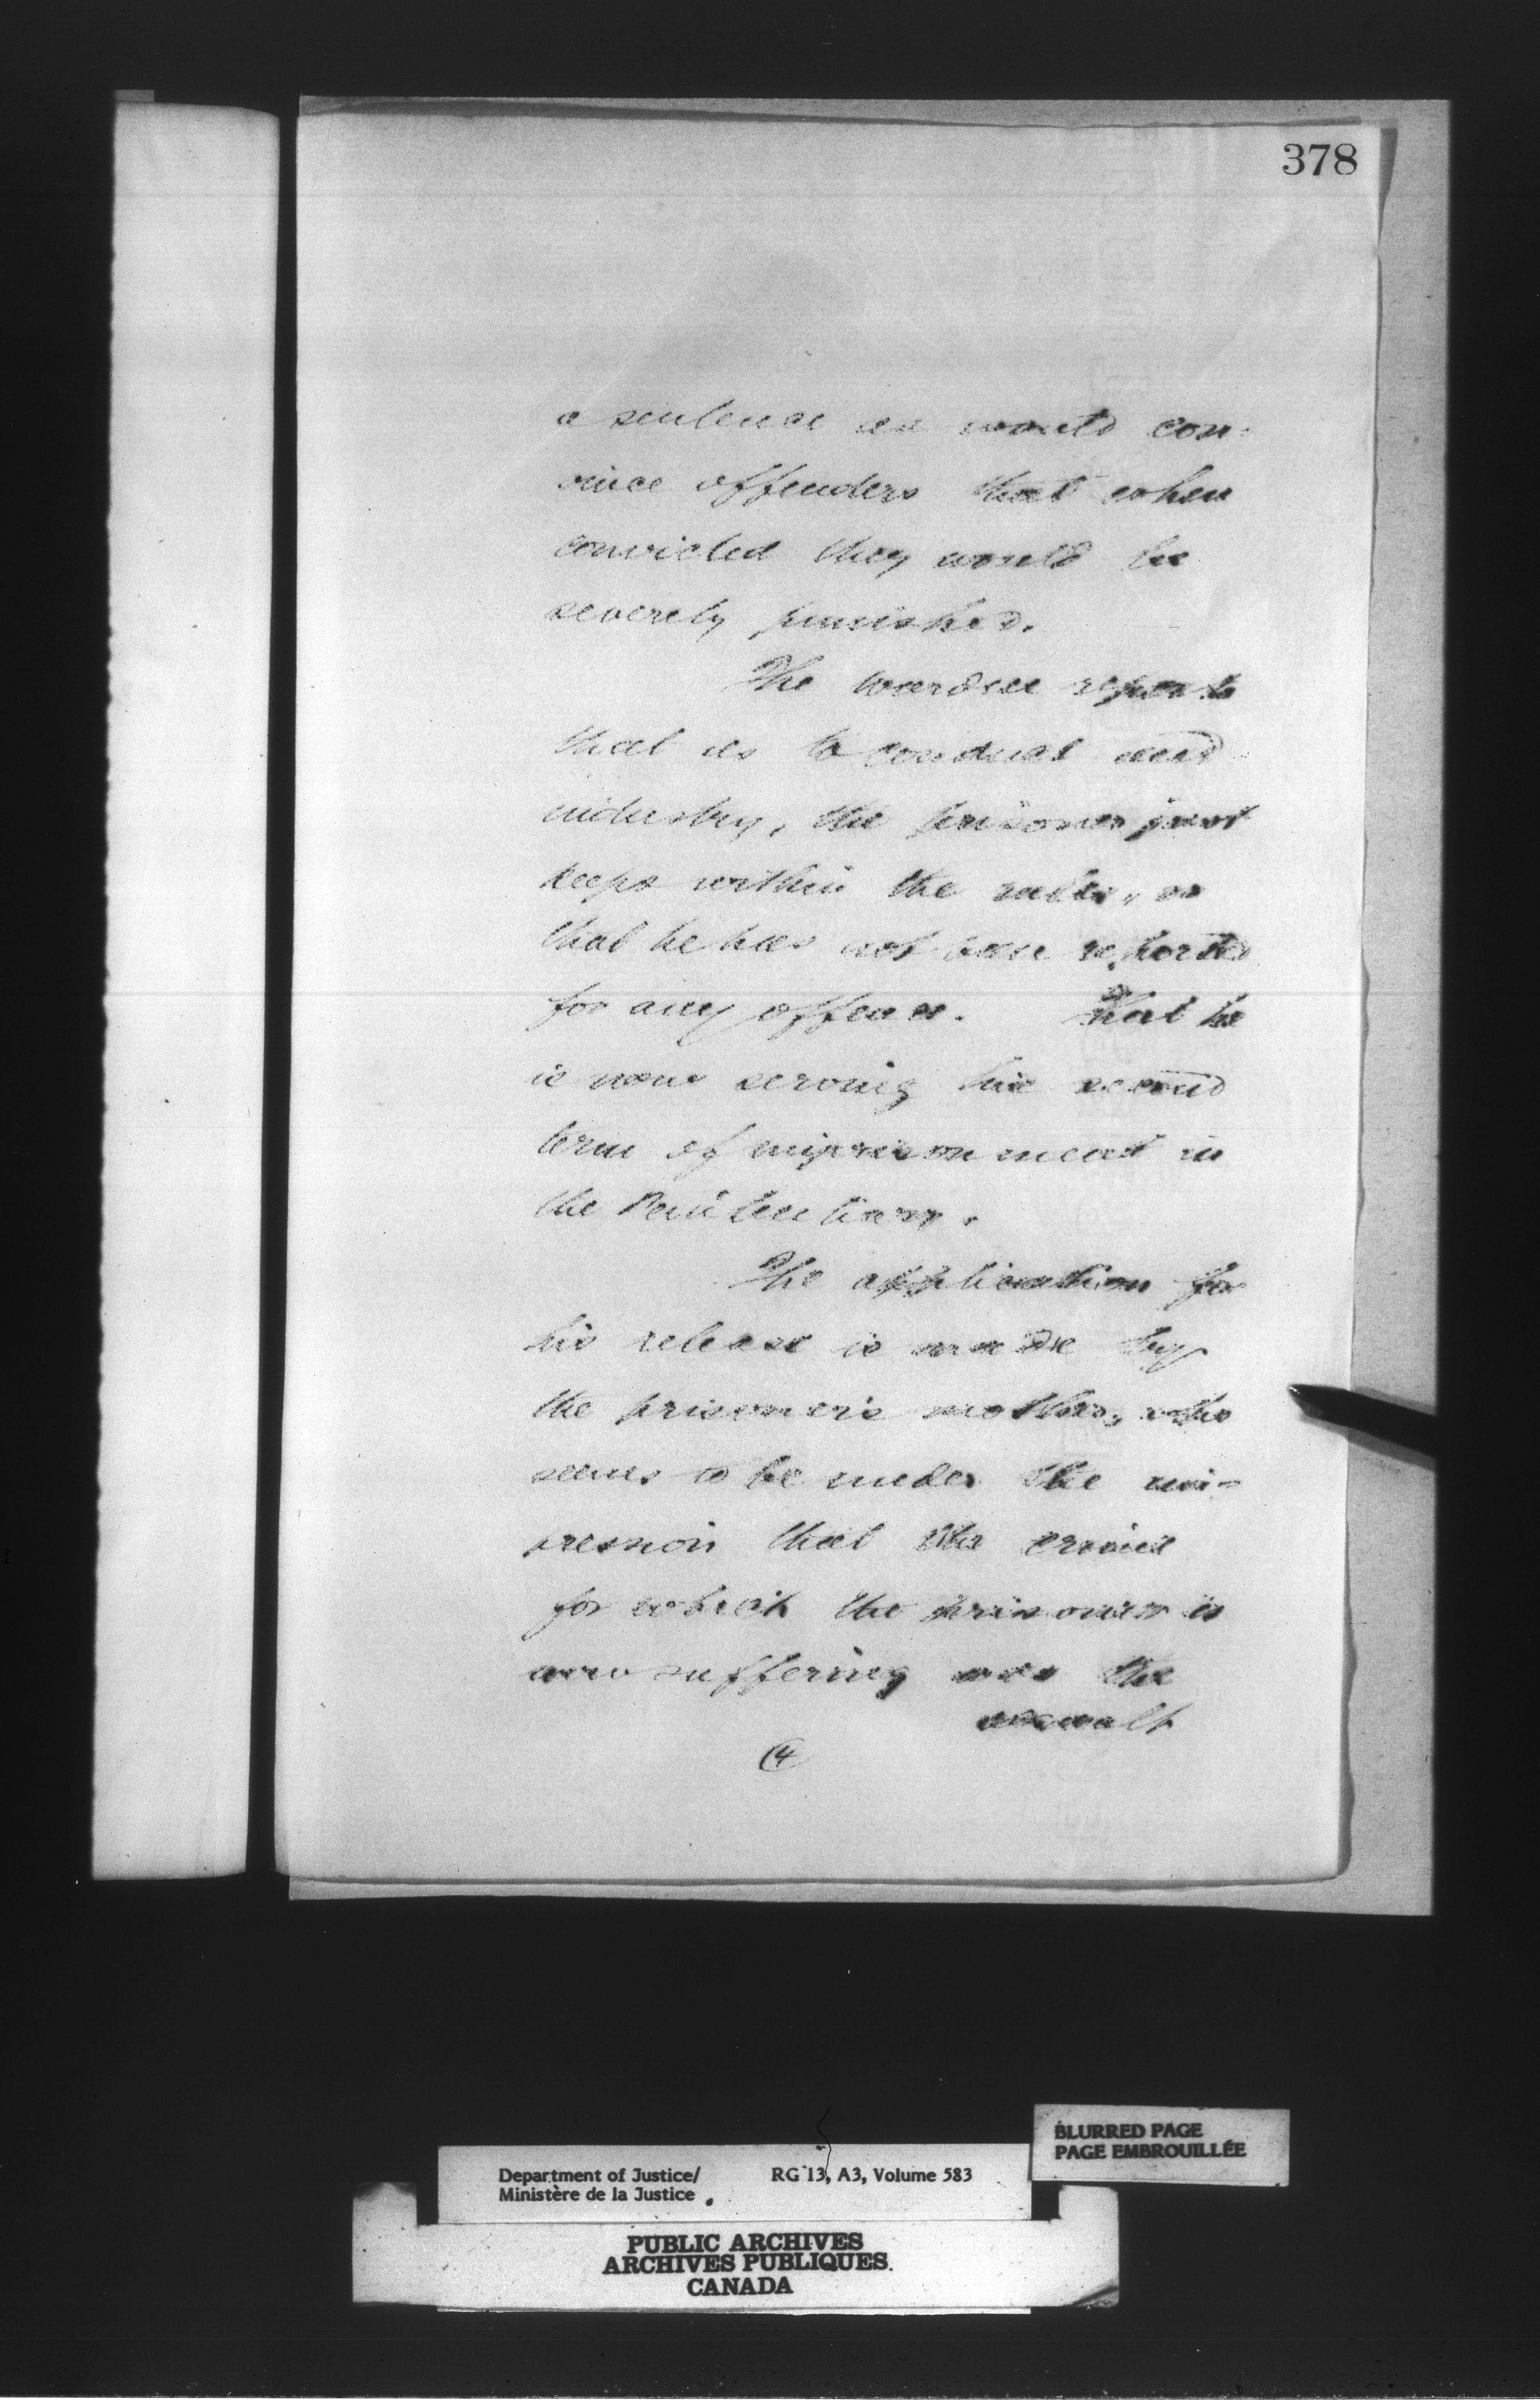 378
a sentence as would con-
vince offenders that when
convicted they would be
severely punished.
The warden reports
that as to conduct and
industry, the prisoner just
keeps within the rules, or
that he has not been reported
for any offence. That he
is now serving his second
term of imprisonment in
the Penitentiary.
The application for
his release is made by
the prisoner's mother, who
seems to be under the im-
pression that the crime
for which the prisoner is
now suffering was the
assault
(4
Department of Justice/
Ministère de la Justice
RG 13, A3, Volume 583
BLURRED PAGE
PAGE EMBROUILLÉE
PUBLIC ARCHIVES
ARCHIVES PUBLIQUES
CANADA